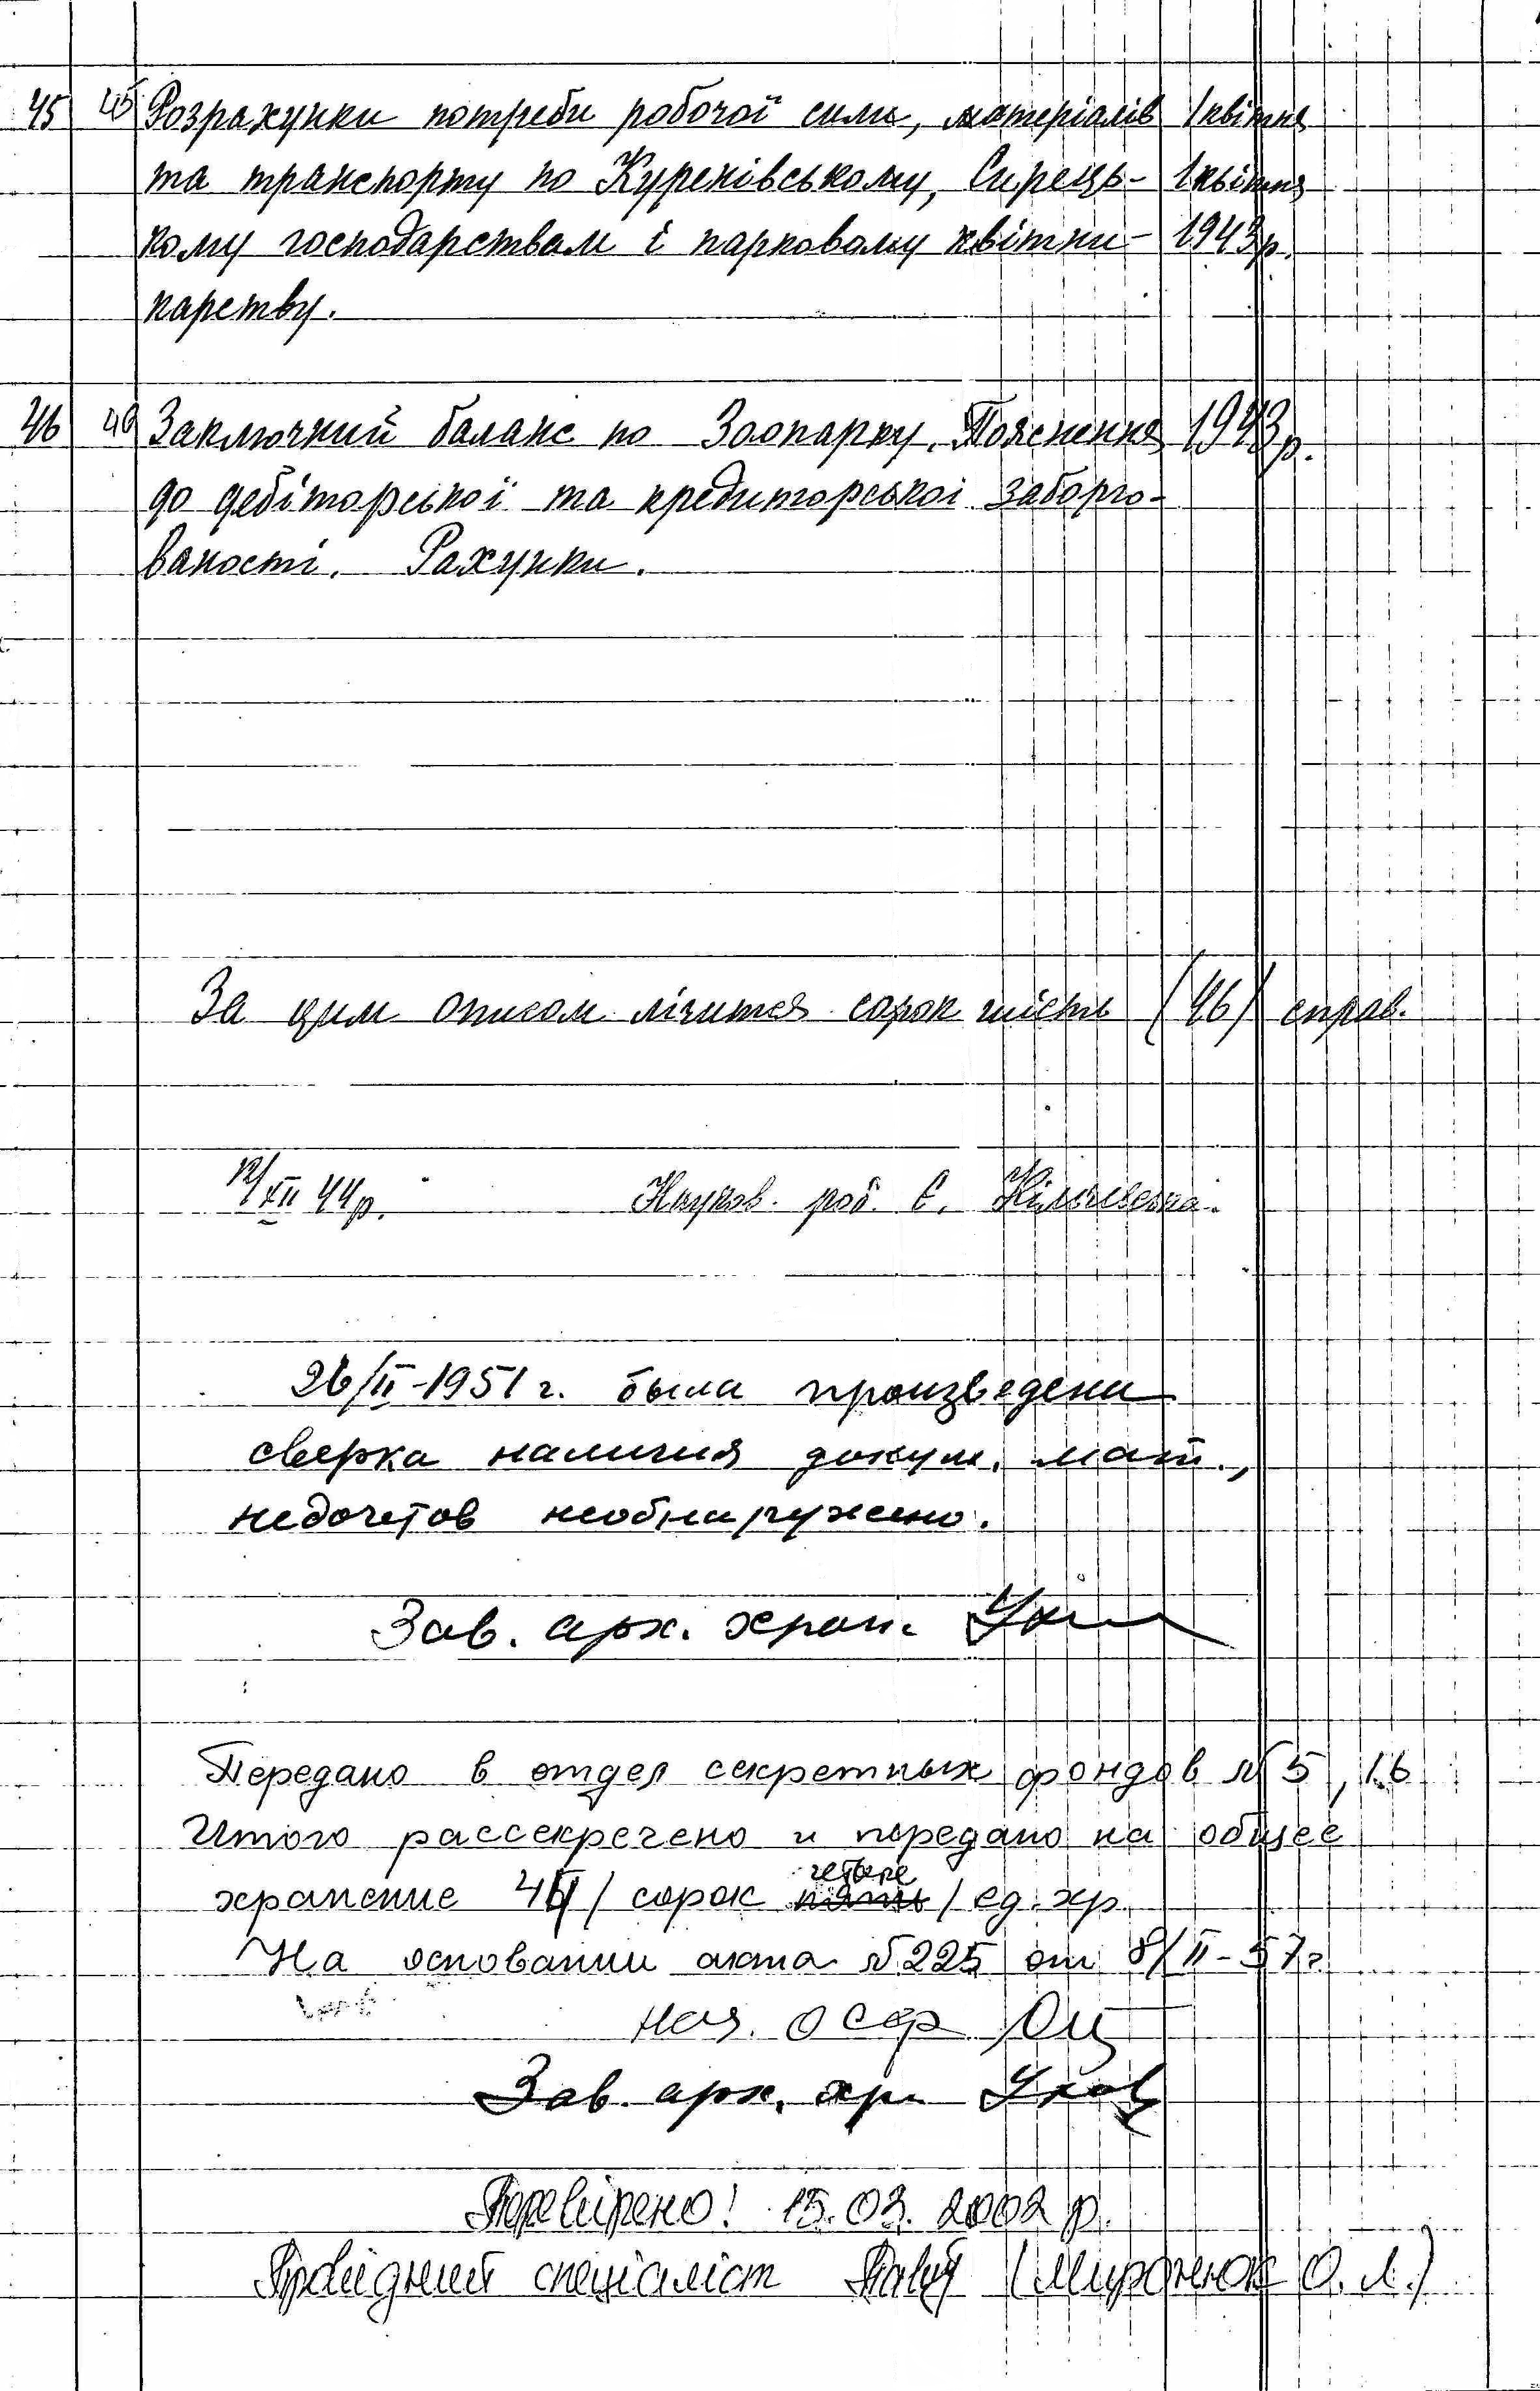 45 45 Розрахунки потреби робочої сили, матеріалів 1 квітня
та транспорту по Куренівському, Сирець- 1 квітня
кому господарствам і парковому квітни- 1943 р.
карству.
46 46 Заключний баланс по Зоопарку. Пояснення 1943 р.
до дебіторської та кредиторської заборго-
ваності. Рахунки.
За цим описом лічится сорок шість (46) справ.
12/XII 44 р. Науков. роб. Є.
26/II-1951 г. была произведена
сверка наличия докум. мат.,
недочетов необнаружено.
Зав. арх. хран.
Передано в отдел секретных фондов № 5, 16
Итого рассекречено и передано на общее
четыре
хранение 44 / сорок пять / ед. хр.
На основании акта № 225 от 8/II-57 г.
Нач. ОСФ
Зав. арх. хр.
Перевірено! 15.03.2002 р.
Провідний спеціаліст (Миронюк О. Л.)